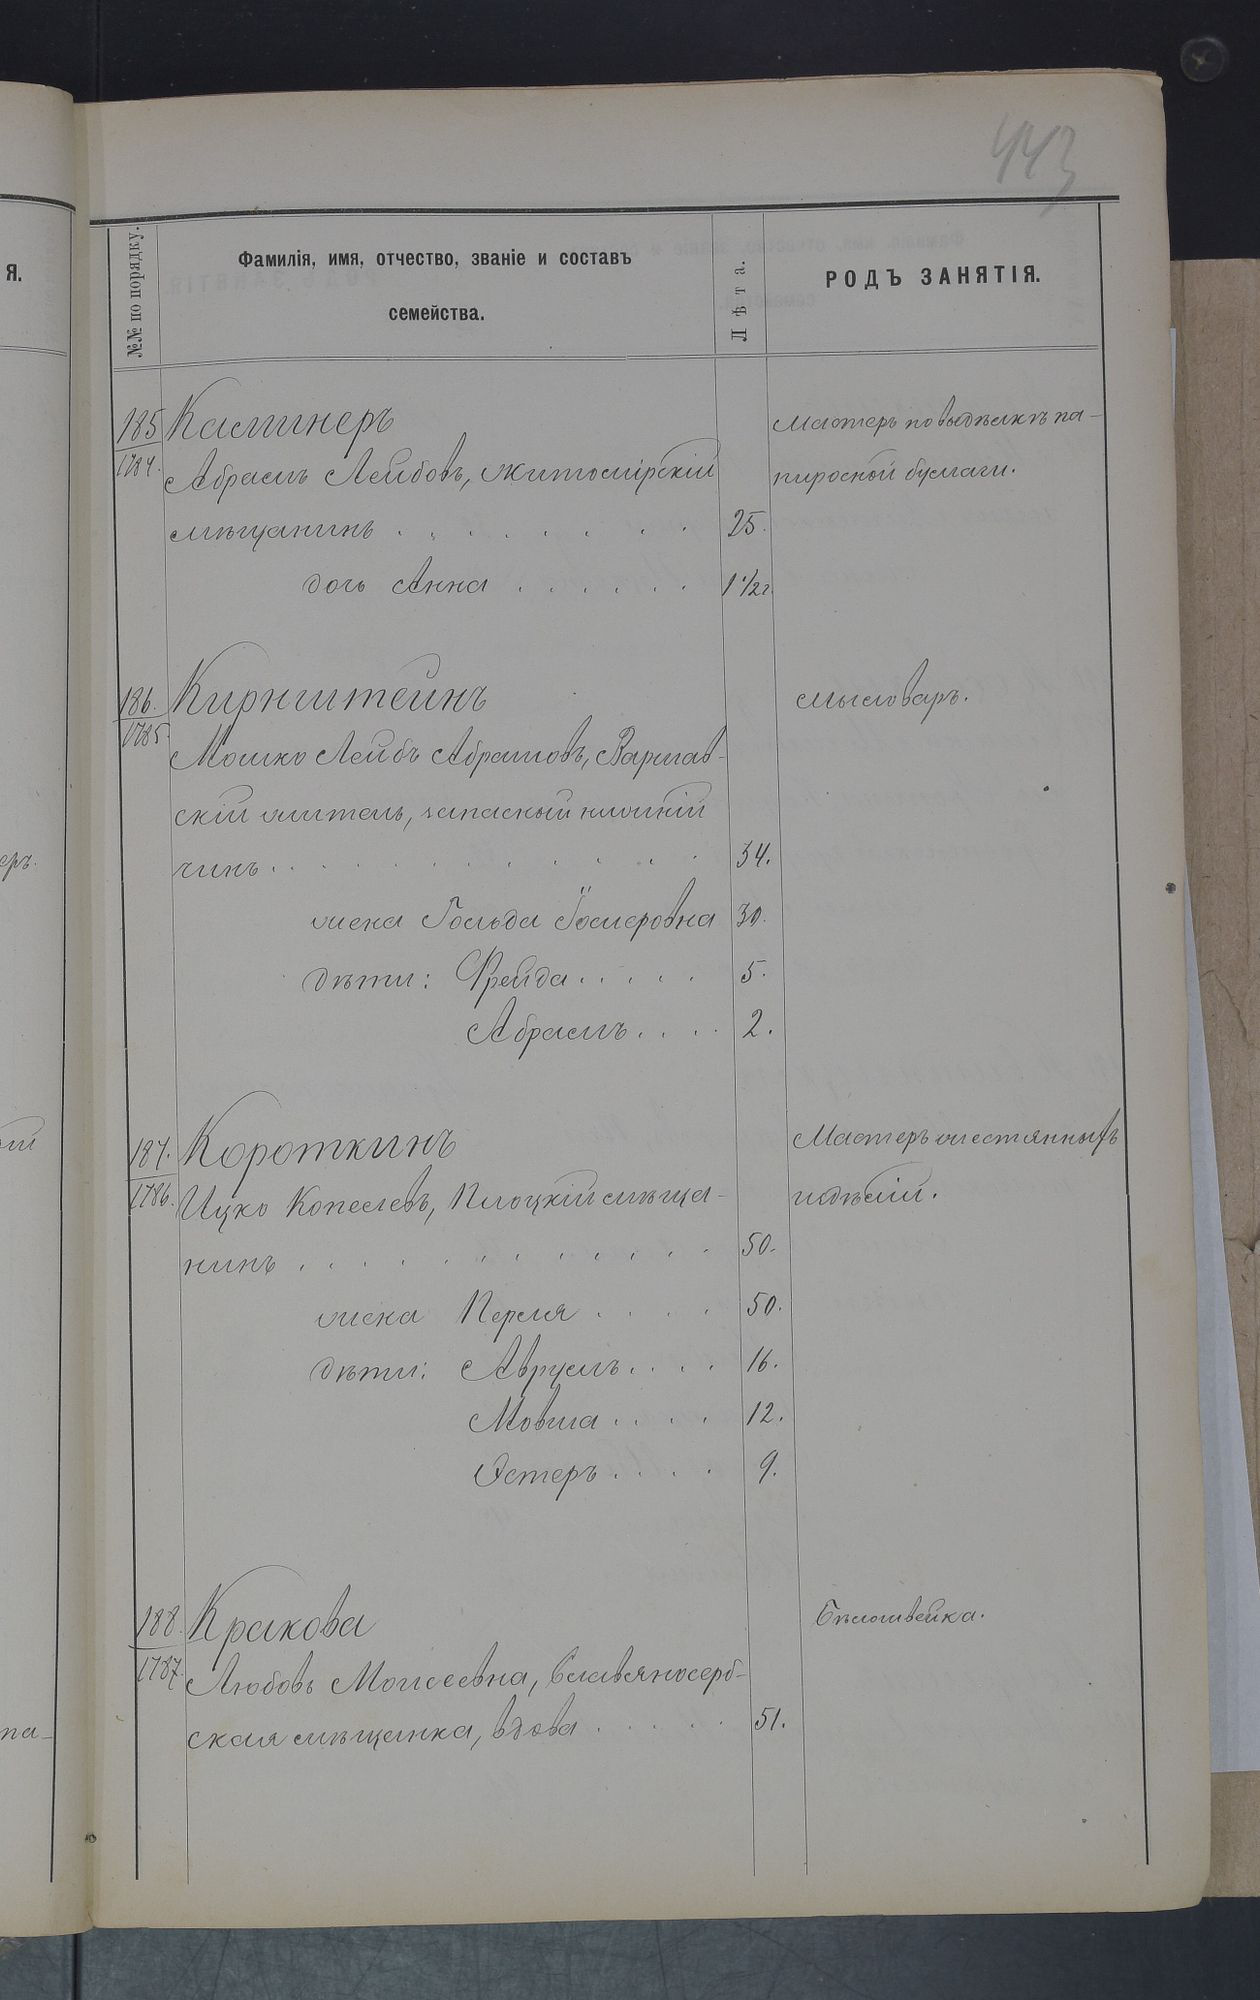 443
Я.
№№ по порядку.
Фамилія, имя, отчество, званіе и составъ
семейства.
Лѣта.
РОДЪ ЗАНЯТІЯ.
185 Калинеръ
Мастеръ по выдѣлкѣ па-
1784. Абрамъ Лейбовъ, житомірскій
пиросной бумаги.
мѣщанинъ . . . . . . . 25.
дочь Анна . . . . . . 1 1/2 г.
186. Кирнштейнъ
мыловаръ.
1785. Мошко Лейбъ Абрамовъ, Варшав-
скій житель, запасный нижній
чинъ . . . . . . . . . . . 34.
еръ.
жена Гольда Іосифовна 30.
дѣти: Фрейда . . . . . 5.
Абрамъ . . . . 2.
187. Короткинъ
Мастеръ жестянныхъ
ій
1786. Ицко Копелевъ, Плоцкій мѣща-
издѣлій.
нинъ . . . . . . . . . . . 50.
жена Перля . . . . 50.
дѣти: Аврумъ . . . . 16.
Мовша . . . . 12.
Эстеръ . . . . 9.
188. Кракова
Бѣлошвейка.
1787. Любовь Моисеевна, Славяносерб-
па-
ская мѣщанка, вдова . . . . . 51.